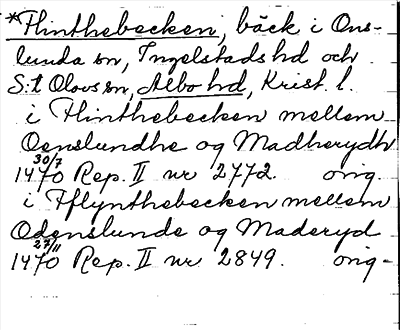 *Flinthebecken, bäck i Ons-
lunda sn, Ingelstads hd och
S:t Olovs sn, Albo hd, Krist. l.
i Flinthebecken mellem
Oenslundhe og Madherydh
30/7 1470 Rep. II nr 2772. orig.
i Fflynthebecken mellem
Odenslunde og Maderyd
27/11 1470 Rep. II nr 2849. orig-